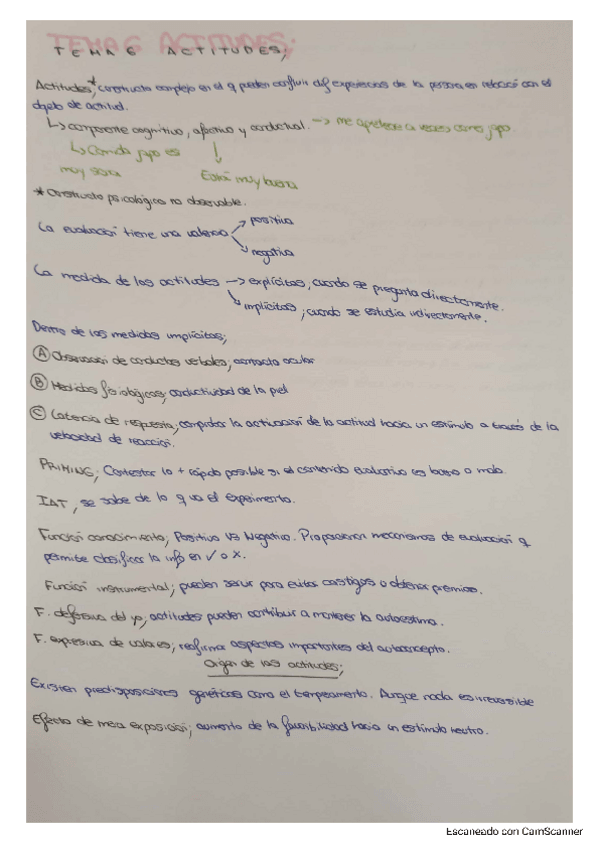 TEMA 6 ACTITUDES;
Actitudes*; constructo complejo en el q pueden confluir dif experiencias de la persona en relación con el
objeto de actitud.
↳ componente cognitivo, afectivo y conductual. → me apetece a veces comer japo.
↳ Comida japo es muy sana
↓ Está muy buena
* Constructo psicológico no observable.
La evaluación tiene una valencia → positiva
↘ negativa
La medida de las actitudes → explícitas, cuando se pregunta directamente.
↘ implícitas; cuando se estudia indirectamente.
Dentro de las medidas implícitas;
Ⓐ Observación de conductas verbales, contacto ocular
Ⓑ Medidas fisiológicas; conductividad de la piel
Ⓒ Latencia de respuesta; comprobar la activación de la actitud hacia un estímulo a través de la
velocidad de reacción.
PRIMING; Contestar lo + rápido posible si el contenido evaluativo es bueno o malo.
IAT, se sabe de lo q va el experimento.
Función conocimiento; Positivo VS Negativo. Proporcionan mecanismos de evaluación q
permite clasificar la info en ✓ o X.
Función instrumental; pueden servir para evitar castigos o obtener premios.
F. defensiva del yo; actitudes pueden contribuir a mantener la autoestima.
F. expresiva de valores; reafirma aspectos importantes del autoconcepto.
Origen de las actitudes;
Existen predisposiciones genéticas como el temperamento. Aunque nada es irreversible
Efecto de mera exposición; aumento de la favorabilidad hacia un estímulo neutro.
Escaneado con CamScanner